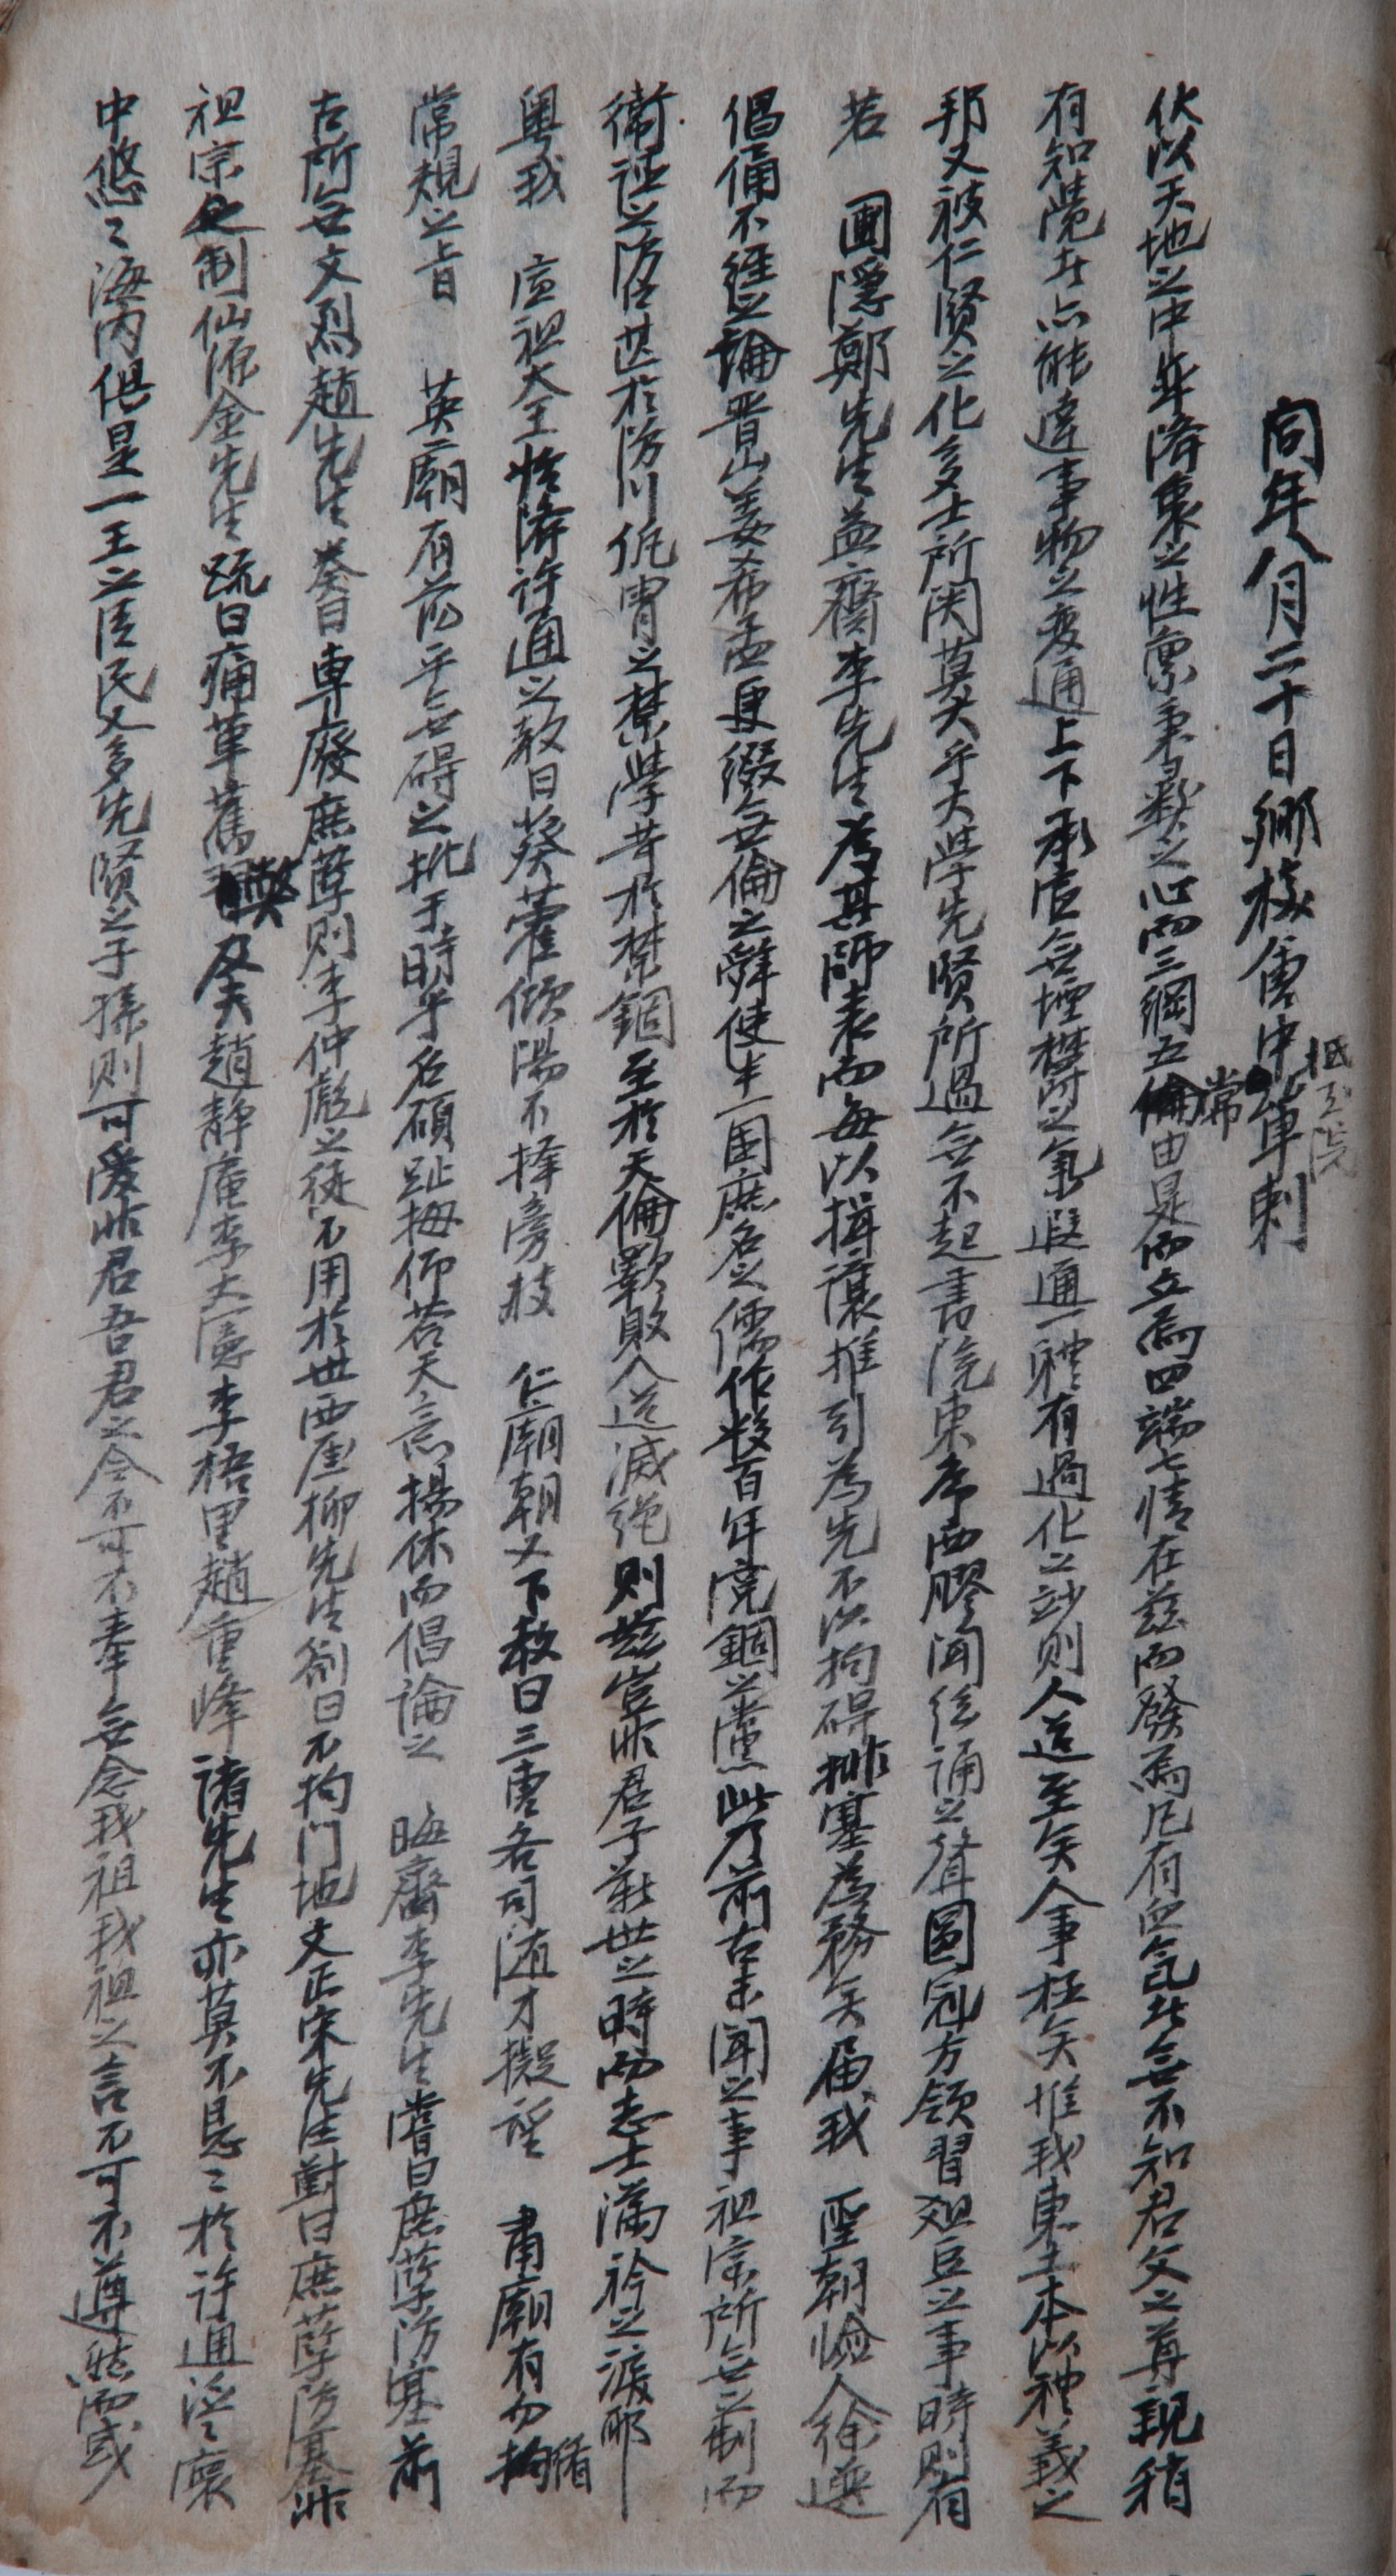 同年八月二十日鄕校儒中單刺
抵玉院
伏以天地之中
降衷之性稟秉彝之心而三綱五常由是而立焉四端七情在茲而發焉凡有血氣者無不知君父之尊親稍
有知覺者亦能達事物之変通上下承
無堙鬱之氣遐通一體有過化之妙則人道至矣人事極矣惟我東土本以禮義之
邦又被仁賢之化多士所関莫大乎大學先賢所過無不起書院東序西膠聞絃誦之聲圓冠方領習俎豆之事時則有
若 圃隱鄭先生益齋李先生為其師表而每以揖讓推引為先不以拘碍排塞為務矣届我 聖朝憸人徐選
倡俑不經之論晋山姜希孟更綴無倫之辭使半國庶名之儒作數百年完錮之黨此乃前古未聞之事祖宗所無之制而
衛誣之防
甚於防川
冑之禁學甚於禁錮至於天倫斁敗人道滅絶則茲豈非君子歎世之時而志士滿衿之淚耶
粤我 宣祖大王恠降許通之敎曰葵藿傾陽不擇旁枝 仁廟朝又下敎曰三曺各司随才擬望 肅廟有勿拘
常規之旨 英廟有前平無碍之批于時乎名碩
仰若天意揚休而倡論之 晦齋李先生嘗曰庶孽防塞前
古所無文烈趙先生奏曰専廢庶孽則李仲彪之徒不用於世西厓柳先生箚曰不拘門地文正宋先生對曰庶孽防塞非
祖宗之制仙源金先生疏曰痛革舊弊及夫趙静庵李大憲李梧里趙重峰諸先生亦莫不恳々於許通
中悠々海內俱是一王之臣民又多先賢之子孫則可愛非君吾君之令不可不奉無念我祖我祖之言不可不遵然而或